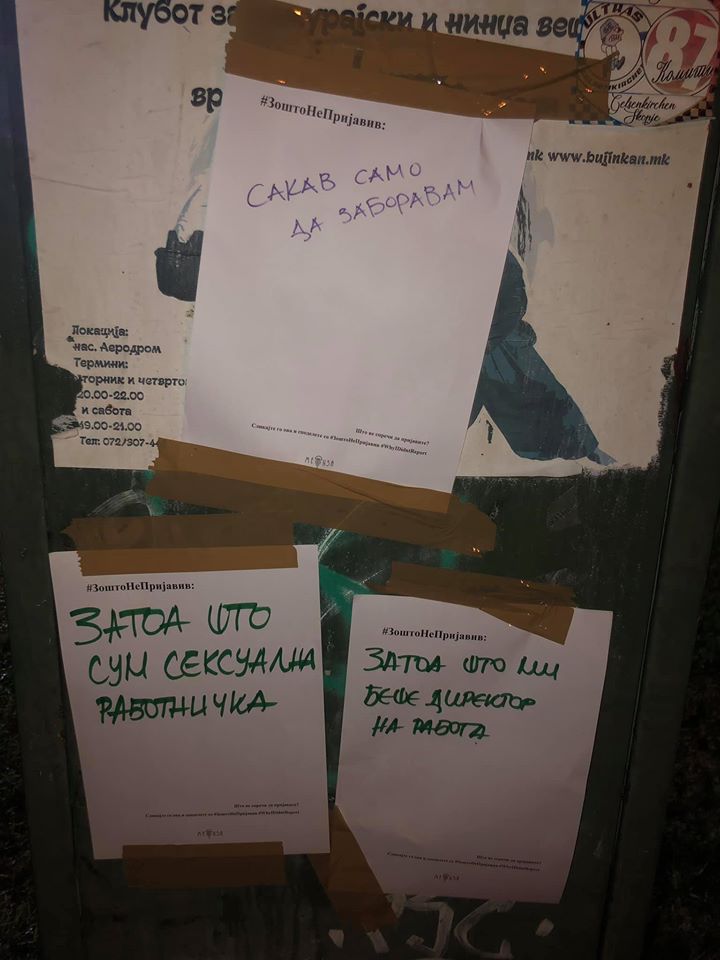 Клубот за
и нинџа
вр
ULTRAS
GELSENKIRCHEN
87
Комити
Gelsenkirchen
Skopje
mk www.bujinkan.mk
#ЗоштоНеПријавив:
САКАВ САМО
ДА ЗАБОРАВАМ
Што ве спречи да пријавите?
Сликајте го ова и споделете со #ЗоштоНеПријавив #WhyIDidntReport
МЕДУЗА
Локација:
нас. Аеродром
Термини:
вторник и четврто
20.00-22.00
и сабота
19.00-21.00
Тел: 072/307-4
#ЗоштоНеПријавив:
ЗАТОА ШТО
СУМ СЕКСУАЛНА
РАБОТНИЧКА
Што ве спречи да пријавите?
Сликајте го ова и споделете со #ЗоштоНеПријавив #WhyIDidntReport
МЕДУЗА
#ЗоштоНеПријавив:
ЗАТОА ШТО МИ
БЕШЕ ДИРЕКТОР
НА РАБОТА
Што ве спречи да пријавите?
Сликајте го ова и споделете со #ЗоштоНеПријавив #WhyIDidntReport
МЕДУЗА